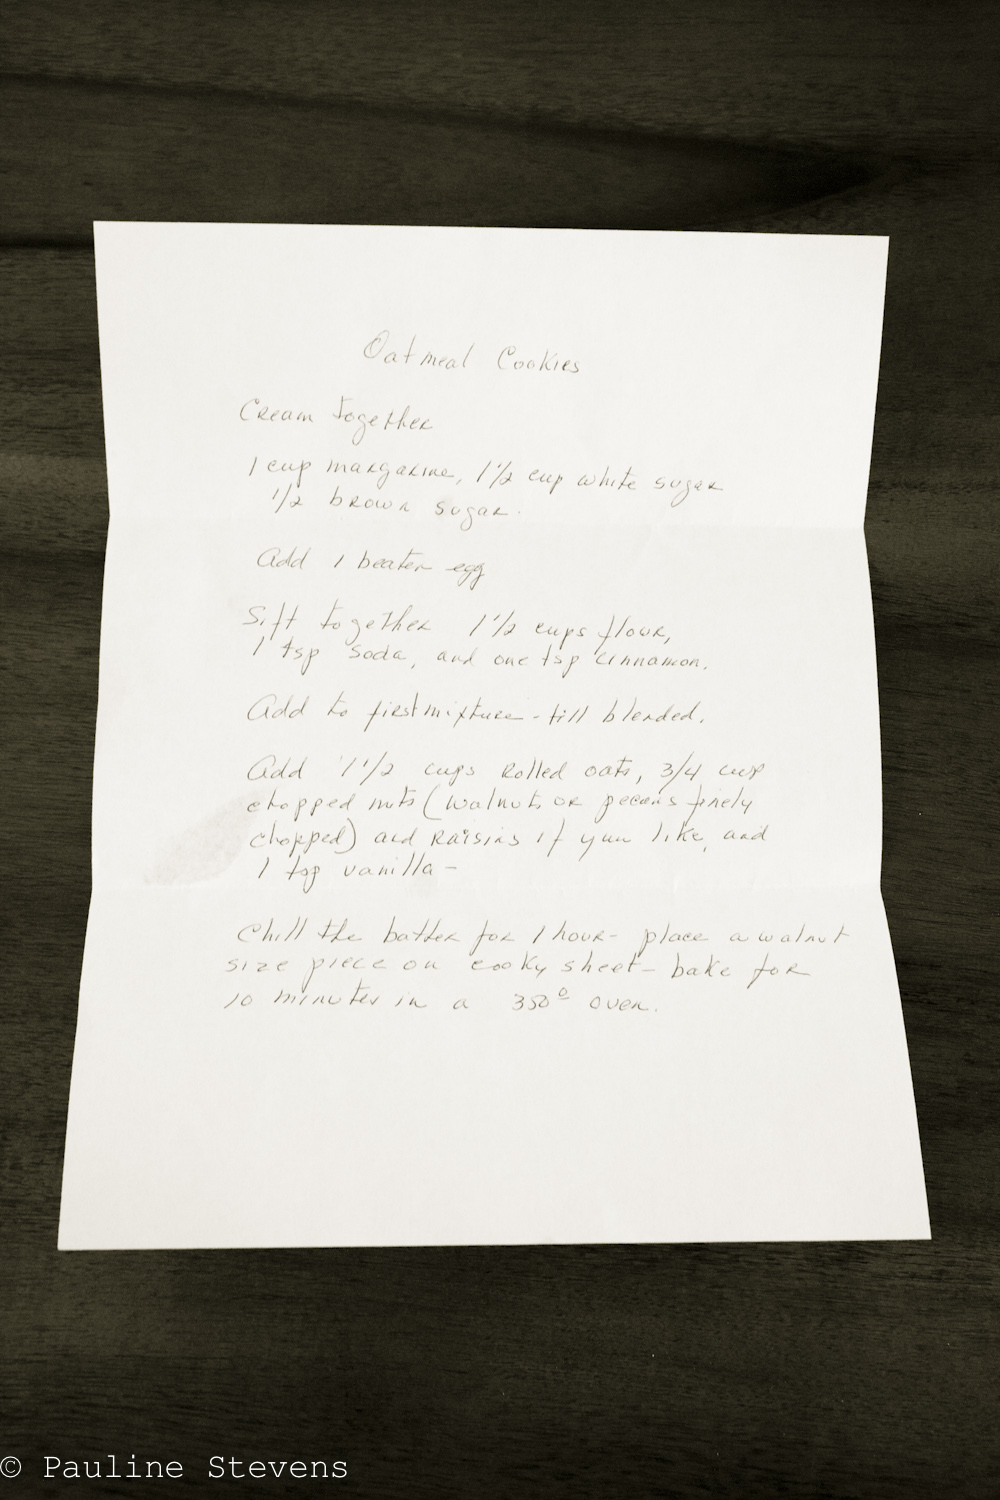 Oatmeal Cookies
Cream together
1 cup margarine, 1 1/2 cup white sugar
1/2 brown sugar.
Add 1 beaten egg
Sift together 1 1/2 cups flour,
1 tsp soda, and one tsp cinnamon.
Add to first mixture - till blended.
Add 1 1/2 cups rolled oats, 3/4 cup
chopped nuts (walnuts or pecans finely
chopped) and raisins if you like, and
1 tsp vanilla -
Chill the batter for 1 hour - place a walnut
size piece on cooky sheet - bake for
10 minutes in a 350° oven.
© Pauline Stevens